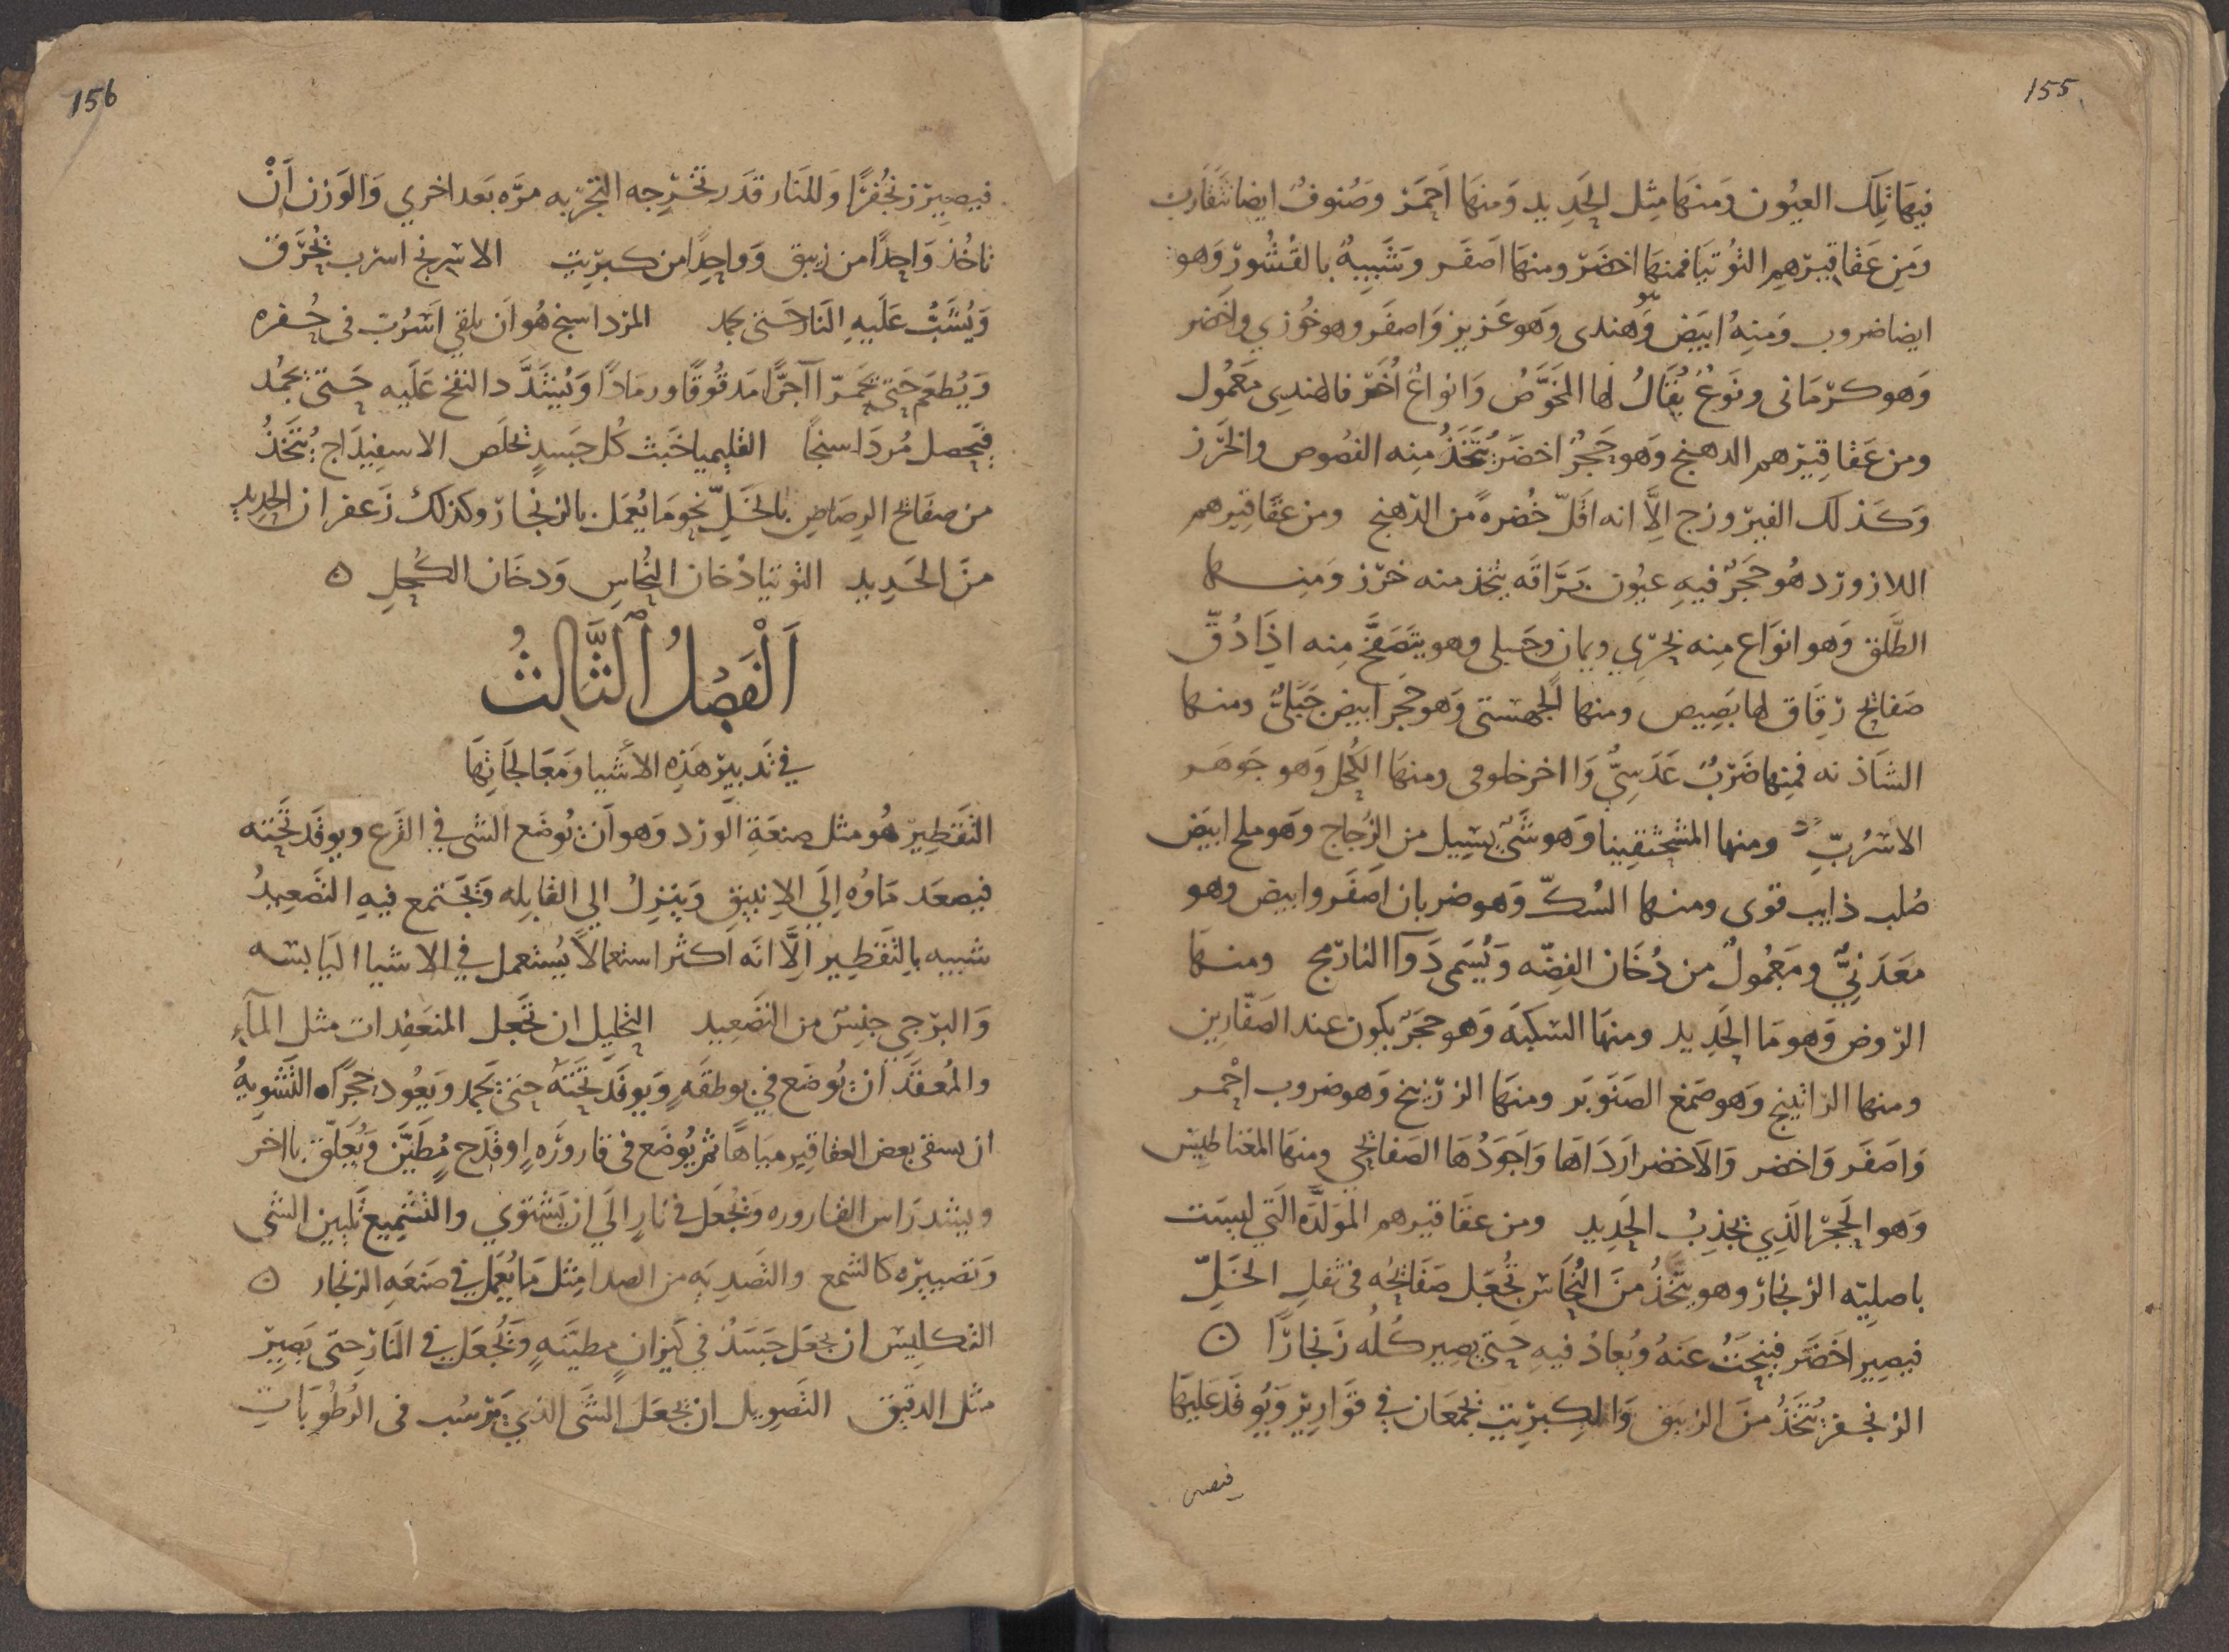 155
فيهَا تِلكَ العيُون وَمنهَا مِثل الحَدِيد وَمنهَا اَحمَر وصُنوفٌ ايضا تتقَارب
ومَن عَقاقيرهِم التُوتيَا فمنهَا اخضَر ومنهَا اصَفَر وشَبِيهٌ بالقُشُورِ وَهو
ايضا ضروب وَمنهُ ابيَض وهَندى وَهو عَزيز وَاصفَر وهو خُوزي واخضر
وَهو كرمَانى ونَوعٌ يُقالُ لها المخَوَّصُ وَانواعٌ اُخَر فالهندي مَعمُول
ومن عَقاقيرهم الدهنج وَهو حَجرٌ اخضَر يُتخَذُ مِنه الفصُوص والخَرَز
وَكذلك الفيروزج الَّا انه اقلّ خُضرةً من الدَهنج ومن عقَاقيرهم
اللازورد هُو حَجَرٌ فيهِ عيُون بَرَّاقَه يتخذ منه خرَز وَمنها
الطَّلق وَهو انوَاع مِنه بَحرِي ويمان وجَبلى وهو يتصَفَّح مِنه اذَا دُقّ
صَفايح رقَاق لها بَصِيص ومنها الجهَستى وَهو حجَر ابيض جَبَليٌّ ومنها
الشاذنه فمِنها ضَربٌ عَدَسِيٌّ وَااخر خلوفى ومنهَا الكُحل وَهو جَوهَر
الاسْرُبِّ ومنها المسحَقونيا وَهو شَئ يَسِيل من الزُجاج وَهو ملح ابيَض
صُلب ذايب قوى ومنها السُكّ وَهو ضربان اصَفَر وابيض وهو
معَدَنيٌّ ومَعمُولٌ من دُخَان الفضّه وَيُسَمى دَوآ النَارمج ومنهَا
الرّوض وَهو مَا الحَدِيد ومنهَا السكبَه وَهو حجَرٌ يكون عند الصَفّارين
ومنها الراتينج وَهو صَمغ الصَنوبَر ومنهَا الزرنيخ وَهو ضروب احمر
وَاصَفَر وَاخضر وَالاَخضر ارَدَاهَا وَاجَودُهَا الصَفايحي ومنهَا المغناطيس
وَهو الحَجَر الذِي يجذِبُ الحَدِيد ومن عقَاقيرهم المَولدَّه التي ليسَت
باصليّه الزنجَار وهو يتخَذُ منَ النُحَاس تُجعَل صَفَايحُه في ثفلِ الخَلِّ
فيصِير اخَضَر فينحَتُ عنهُ ويُعادُ فيهِ حَتى يصِير كلُه زنجارًا ۝
الزنجفر يُتخَذُ منَ الزيبَق وَالكِبرِيت يجمعَان في قوَاريرَ وَيُوقَد عَليهَا
فيصير
156
فيصِير زنجُفرًا وَللنَار قدَر تُخَرِجه التجرُبه مرَّه بعد اخري وَالوَزن اَنْ
تاخُذ وَاحِدًا من زيبق وَواحِدًا من كبرِيتٍ الاسرنج اسرب يُحَرَّق
وَيُشَبُّ عَلَيهِ النَار حَتى يحمر المرداسنج هُو اَن يلقي اسْرُبٌ في حُفره
وَيُطعَم حَتى يَحمَرّ اآجرًّا مَدقُوقًا ورمَادًا ويُشَدَّد النفخ عَلَيه حَتى يجمُد
فيَحصل مُردَاسنجًا القليميا خَبَث كُل جَسَدٍ تخلَص الاسفيدَاج يُتَّخَذُ
من صفَايح الرصَاصِ بالخَلِّ نحو مَا يُعمَل بالزنجَار وكذلك زَعفران الحديد
منَ الحَدِيد التوتيا دُخان النُحَاسِ وَدخَان الكُحلِ ۝
اَلْفَصْلُ ٱلثَّالِثُ
في تَدبير هَذِه الاشَيا ومَعَالجَاتِهَا
التَقطِير هُو مثل صِنعَة الوَرد وَهو اَن يُوضَع الشى في القَرع ويوقَد تَحَته
فيصعَد مَاوُه اِلَى الاِنبيقِ وَينزِلُ الي القابِله وَيَجَتمع فيهِ التصَعِيدُ
شبيه بِالتَقطِير الَّا انّه اكثر استعمالًا يُستعمل في الاشياا اليَابسَه
وَالترَجي جِنسٌ من التصَعِيد التحليل ان تَجعل المنعَقِدات مثل المآء
والمُعقَد اَن يُوضَع في بوطقَه وَيوقَد تَحَتَه حتى يَجمد ويَعُود حَجرًا ۝ التَشويهُ
ان يسقى بعض العقاقير مياهًا ثم يُوضَع في قارورَه اِو قدَح مُطَيَّن وَيُعَلّق بااخر
ويشد رَاس القاروره وَتُجعَل في نارٍ الَي ان يَشتَوي والتَشميع تَليين الشى
وَتصييره كالشمع والتصَديه من الصدا مِثل مَا يُعمَل في صَنعَه الزنجار ۝
التكلِيس ان يجعَل جَسَدٌ في كيزانٍ مطيَنهٍ وَيُجعَل في النَار حتى يَصِير
مثل الدقيق التَصويل ان تجعَل الشَى الذي يَرسُب في الرُطُوبَاتِ